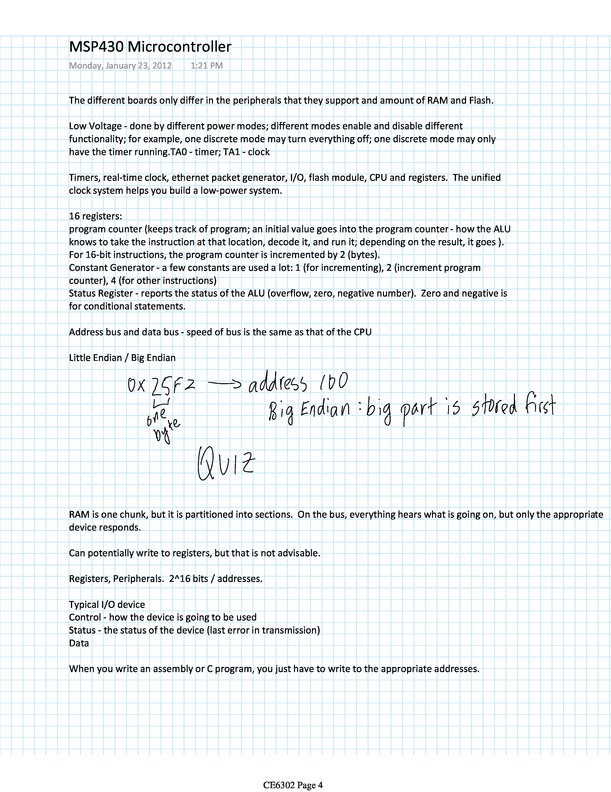 MSP430 Microcontroller
Monday, January 23, 2012 1:21 PM
The different boards only differ in the peripherals that they support and amount of RAM and Flash.
Low Voltage - done by different power modes; different modes enable and disable different
functionality; for example, one discrete mode may turn everything off; one discrete mode may only
have the timer running.TA0 - timer; TA1 - clock
Timers, real-time clock, ethernet packet generator, I/O, flash module, CPU and registers.  The unified
clock system helps you build a low-power system.
16 registers:
program counter (keeps track of program; an initial value goes into the program counter - how the ALU
knows to take the instruction at that location, decode it, and run it; depending on the result, it goes ).
For 16-bit instructions, the program counter is incremented by 2 (bytes).
Constant Generator - a few constants are used a lot: 1 (for incrementing), 2 (increment program
counter), 4 (for other instructions)
Status Register - reports the status of the ALU (overflow, zero, negative number).  Zero and negative is
for conditional statements.
Address bus and data bus - speed of bus is the same as that of the CPU
Little Endian / Big Endian
0x25F2 → address 100
Big Endian : big part is stored first
one
byte
QUIZ
RAM is one chunk, but it is partitioned into sections.  On the bus, everything hears what is going on, but only the appropriate
device responds.
Can potentially write to registers, but that is not advisable.
Registers, Peripherals.  2^16 bits / addresses.
Typical I/O device
Control - how the device is going to be used
Status - the status of the device (last error in transmission)
Data
When you write an assembly or C program, you just have to write to the appropriate addresses.
CE6302 Page 4